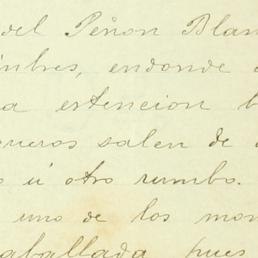 del Peñon Blan
imbres, endonde
a estencion
ueros salen de
o u otro rumbo.
uno de los mon
aballada pues